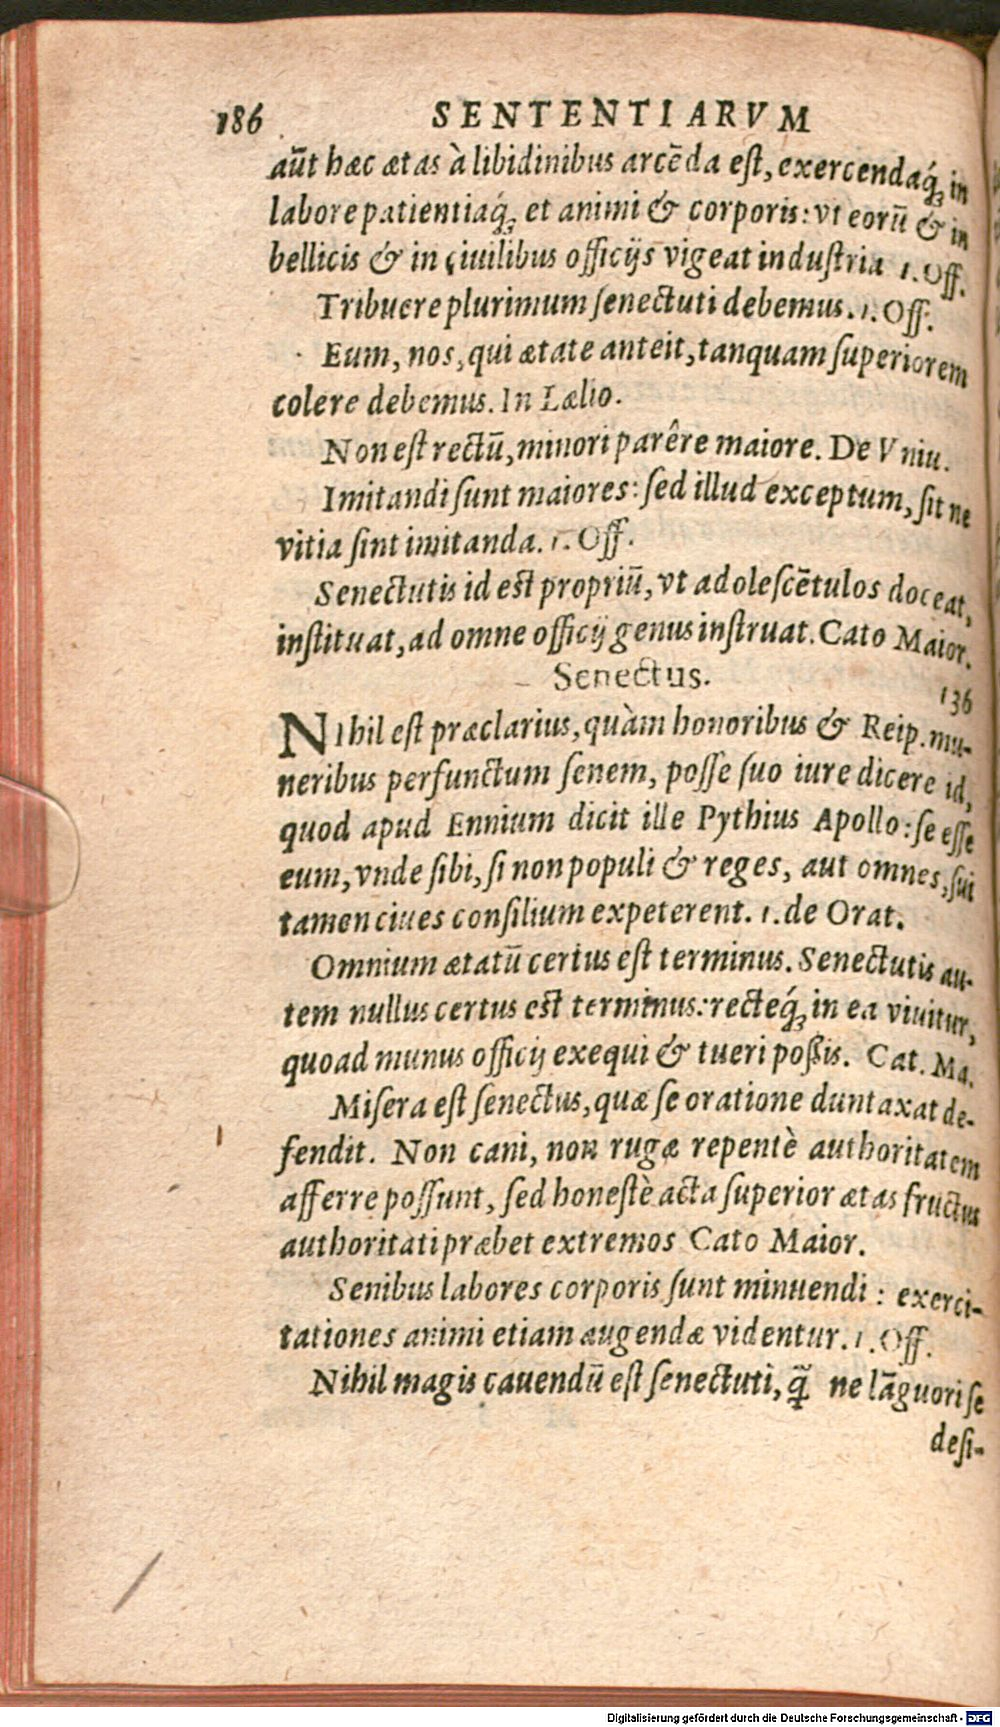 186 SENTENTIARVM
aūt hæc ætas à libidinibus arcēda est, exercendaq́; in
labore patientiaq́; et animi & corporis: vt eorū & in
bellicis & in ciuilibus officijs vigeat industria 1. Off.
Tribuere plurimum senectuti debemus. 1. Off.
Eum, nos, qui ætate anteit, tanquam superiorem
colere debemus. In Lælio.
Non est rectū, minori parêre maiore. De Vniu.
Imitandi sunt maiores: sed illud exceptum, sit ne
vitia sint imitanda. 1. Off.
Senectutis id est propriū, vt adolescētulos doceat,
instituat, ad omne officij genus instruat. Cato Maior.
Senectus. 136
Nihil est præclarius, quàm honoribus & Reip. mu-
neribus perfunctum senem, posse suo iure dicere id,
quod apud Ennium dicit ille Pythius Apollo: se esse
eum, vnde sibi, si non populi & reges, aut omnes, sui
tamen ciues consilium expeterent. 1. de Orat.
Omnium ætatū certus est terminus. Senectutis au-
tem nullus certus est terminus: recteq́; in ea viuitur,
quoad munus officij exequi & tueri poßis. Cat. Ma.
Misera est senectus, quæ se oratione duntaxat de-
fendit. Non cani, non rugæ repentè authoritatem
afferre possunt, sed honestè acta superior ætas fructus
authoritati præbet extremos Cato Maior.
Senibus labores corporis sunt minuendi: exerci-
tationes animi etiam augendæ videntur. 1. Off.
Nihil magis cauendū est senectuti, q̃ ne lāguori se
desi-
Digitalisierung gefördert durch die Deutsche Forschungsgemeinschaft - DFG